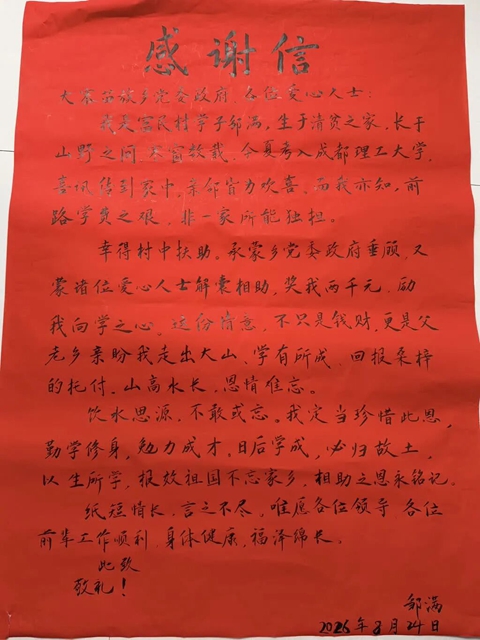 感谢信
大寨苗族乡党委政府、各位爱心人士：
我是富民村学子邹满，生于清贫之家，长于
山野之间，寒窗数载，今夏考入成都理工大学，
喜讯传到家中，亲邻皆为欢喜，而我亦知，前
路学费之艰，非一家所能独担。
幸得村中扶助。承蒙乡党委政府垂顾，又
蒙诸位爱心人士解囊相助，奖我两千元，励
我向学之心，这份情意，不只是钱财，更是父
老乡亲盼我走出大山、学有所成，回报桑梓
的托付。山高水长，恩情难忘。
饮水思源，不敢或忘。我定当珍惜此恩，
勤学修身，勉力成才。日后学成，必归故土，
以生所学，报效祖国不忘家乡，相助之恩永铭记。
纸短情长，言之不尽，唯愿各位领导 各位
前辈工作顺利，身体健康，福泽绵长。
此致
敬礼！
邹满
2026年8月24日